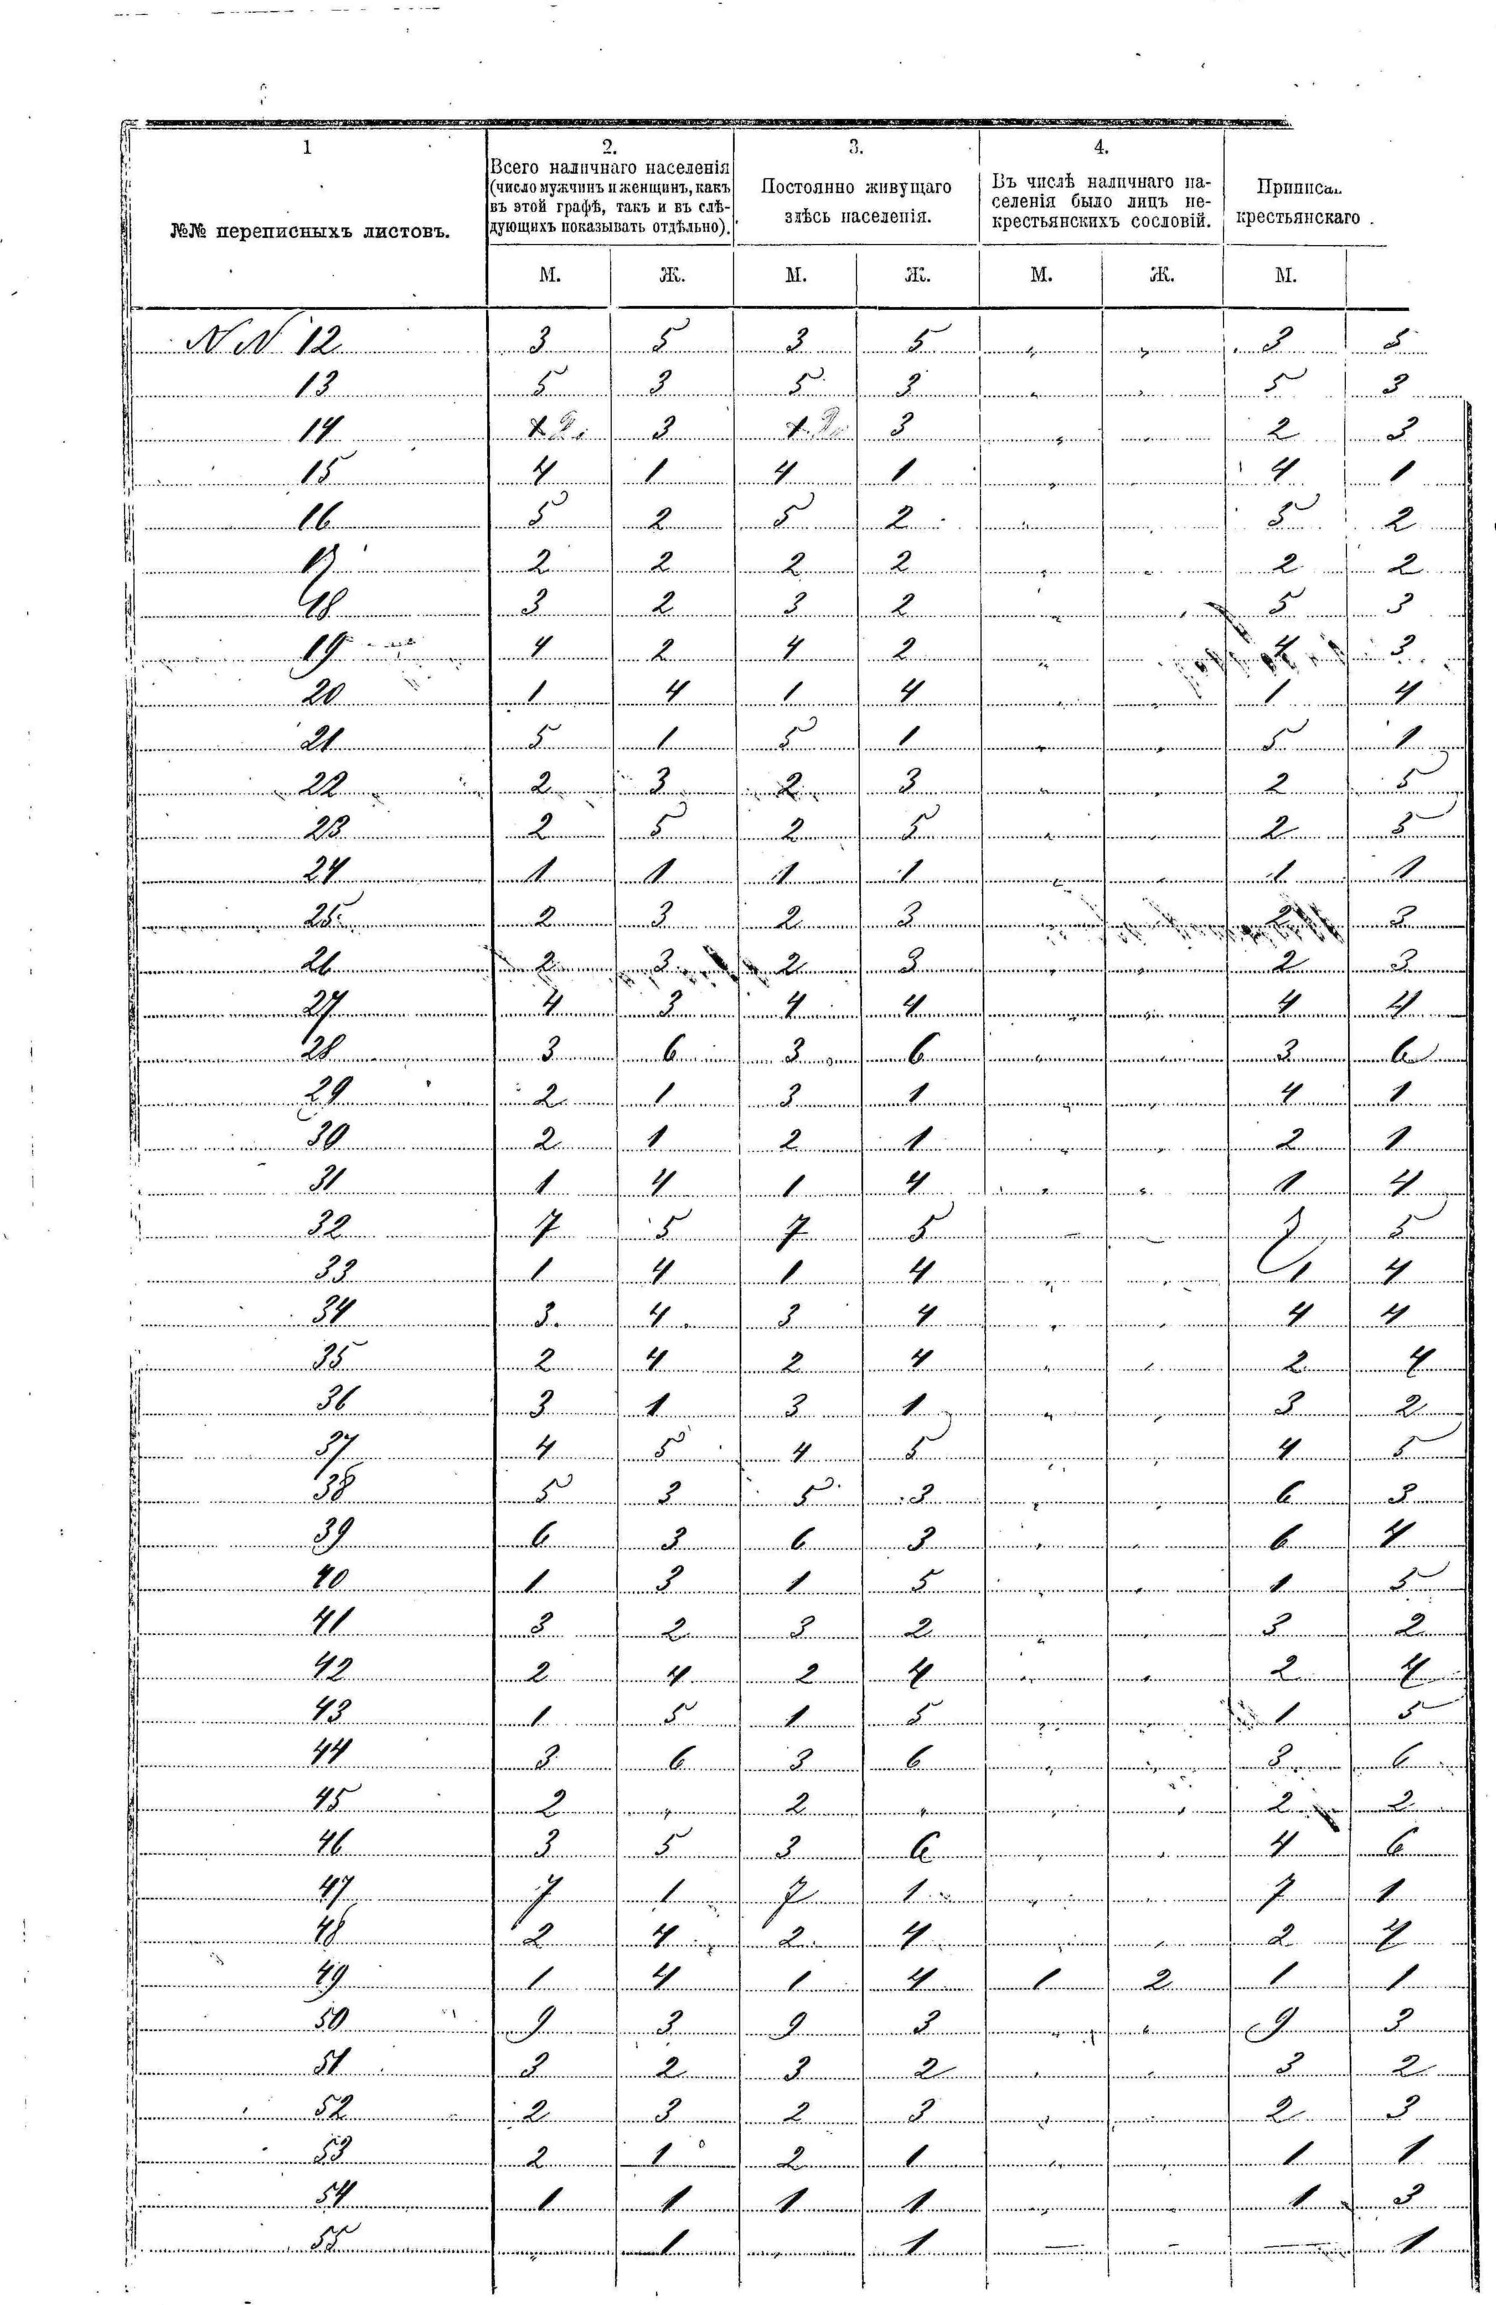 1 2. 3. 4.
№№ переписныхъ листовъ.
Всего наличнаго населенія
(число мужчинъ и женщинъ, какъ
въ этой графѣ, такъ и въ слѣ-
дующихъ показывать отдѣльно).
Постоянно живущаго
здѣсь населенія.
Въ числѣ наличнаго на-
селенія было лицъ не-
крестьянскихъ сословій.
крестьянскаго
М. Ж. М. Ж. М. Ж. М.
N N 12 3 5 3 5 „ „ 3 5
13 5 3 5 3 „ „ 5 3
14 2 3 2 3 „ „ 2 3
15 4 1 4 1 „ „ 4 1
16 5 2 5 2 „ „ 5 2
17 2 2 2 2 „ „ 2 2
18 3 2 3 2 „ „ 5 3
19 4 2 4 2 „ „ 4 3
20 1 4 1 4 „ „ 1 4
21 5 1 5 1 „ „ 5 1
22 2 3 2 3 „ „ 2 5
23 2 5 2 5 „ „ 2 5
24 1 1 1 1 „ „ 1 1
25 2 3 2 3 „ „ 2 3
26 2 3 2 3 „ „ 2 3
27 4 3 4 4 „ „ 4 4
28 3 6 3 6 „ „ 3 6
29 2 1 3 1 „ „ 4 1
30 2 1 2 1 „ „ 2 1
31 1 4 1 4 „ „ 1 4
32 7 5 7 5 — — 7 5
33 1 4 1 4 „ „ 1 4
34 3 4 3 4 „ „ 4 4
35 2 4 2 4 „ „ 2 4
36 3 1 3 1 „ „ 3 2
37 4 5 4 5 „ „ 4 5
38 5 3 5 3 „ „ 6 3
39 6 3 6 3 „ „ 6 4
40 1 3 1 5 „ „ 1 5
41 3 2 3 2 „ „ 3 2
42 2 4 2 4 „ „ 2 4
43 1 5 1 5 „ „ 1 5
44 3 6 3 6 „ „ 3 6
45 2 „ 2 „ „ „ 2 2
46 3 5 3 6 „ „ 4 6
47 7 1 7 1 „ „ 7 1
48 2 4 2 4 „ „ 2 4
49 1 4 1 4 1 2 1 1
50 9 3 9 3 „ „ 9 3
51 3 2 3 2 „ „ 3 2
52 2 3 2 3 „ „ 2 3
53 2 1 2 1 „ „ 1 1
54 1 1 1 1 „ „ 1 3
55 „ 1 „ 1 — — — 1